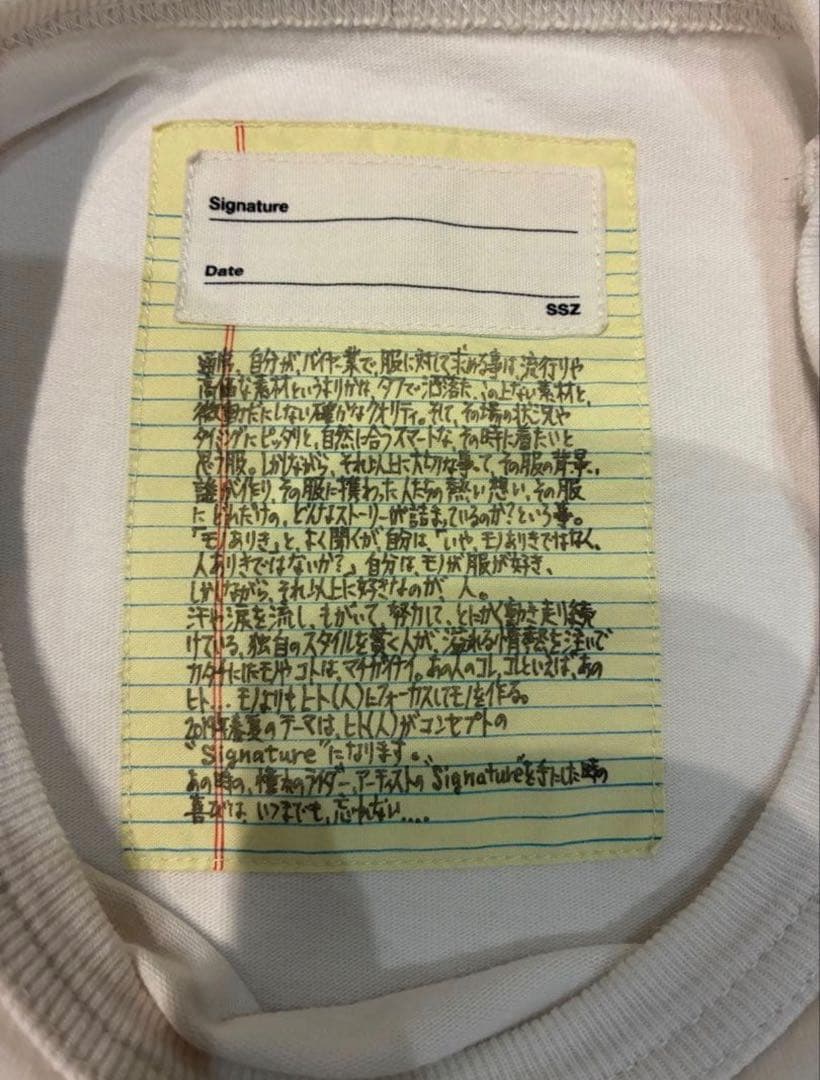 Signature
Date
SSZ
通常、自分が、バイヤー業で、服に対して求める事は、流行りや
高価な素材というよりかは、タフで洒落た、この上ない素材と、
微動だにしない確かなクオリティ。そして、その場の状況や
タイミングにピッタリと、自然に合うスマートな、その時に着たいと
思う服。しかしながら、それ以上に大切な事って、その服の背景、
誰が作り、その服に携わった人たちの熱い想い、その服
に どれだけの、どんなストーリーが詰まっているのか?という事。
「モノありき」と、よく聞くが自分は、「いや、モノありきではなく、
人ありきではないか?」自分は、モノが服が好き、
しかしながら、それ以上に好きなのが、人。
汗や涙を流し、もがいて、努力して、とにかく動き走り続
けている、独自のスタイルを貫く人が、溢れる情熱を注いで
カタチにしたモノやコトは、マチガイナイ。あの人のコレ、コレといえば、あの
ヒト... モノよりもヒト(人)にフォーカスしてモノを作る。
2019年春夏のテーマは、ヒト(人)がコンセプトの
"Signature"になります。
あの時の、憧れのライダー、アーティストの"Signature"を手にした時の
喜びは、いつまでも、忘れない....